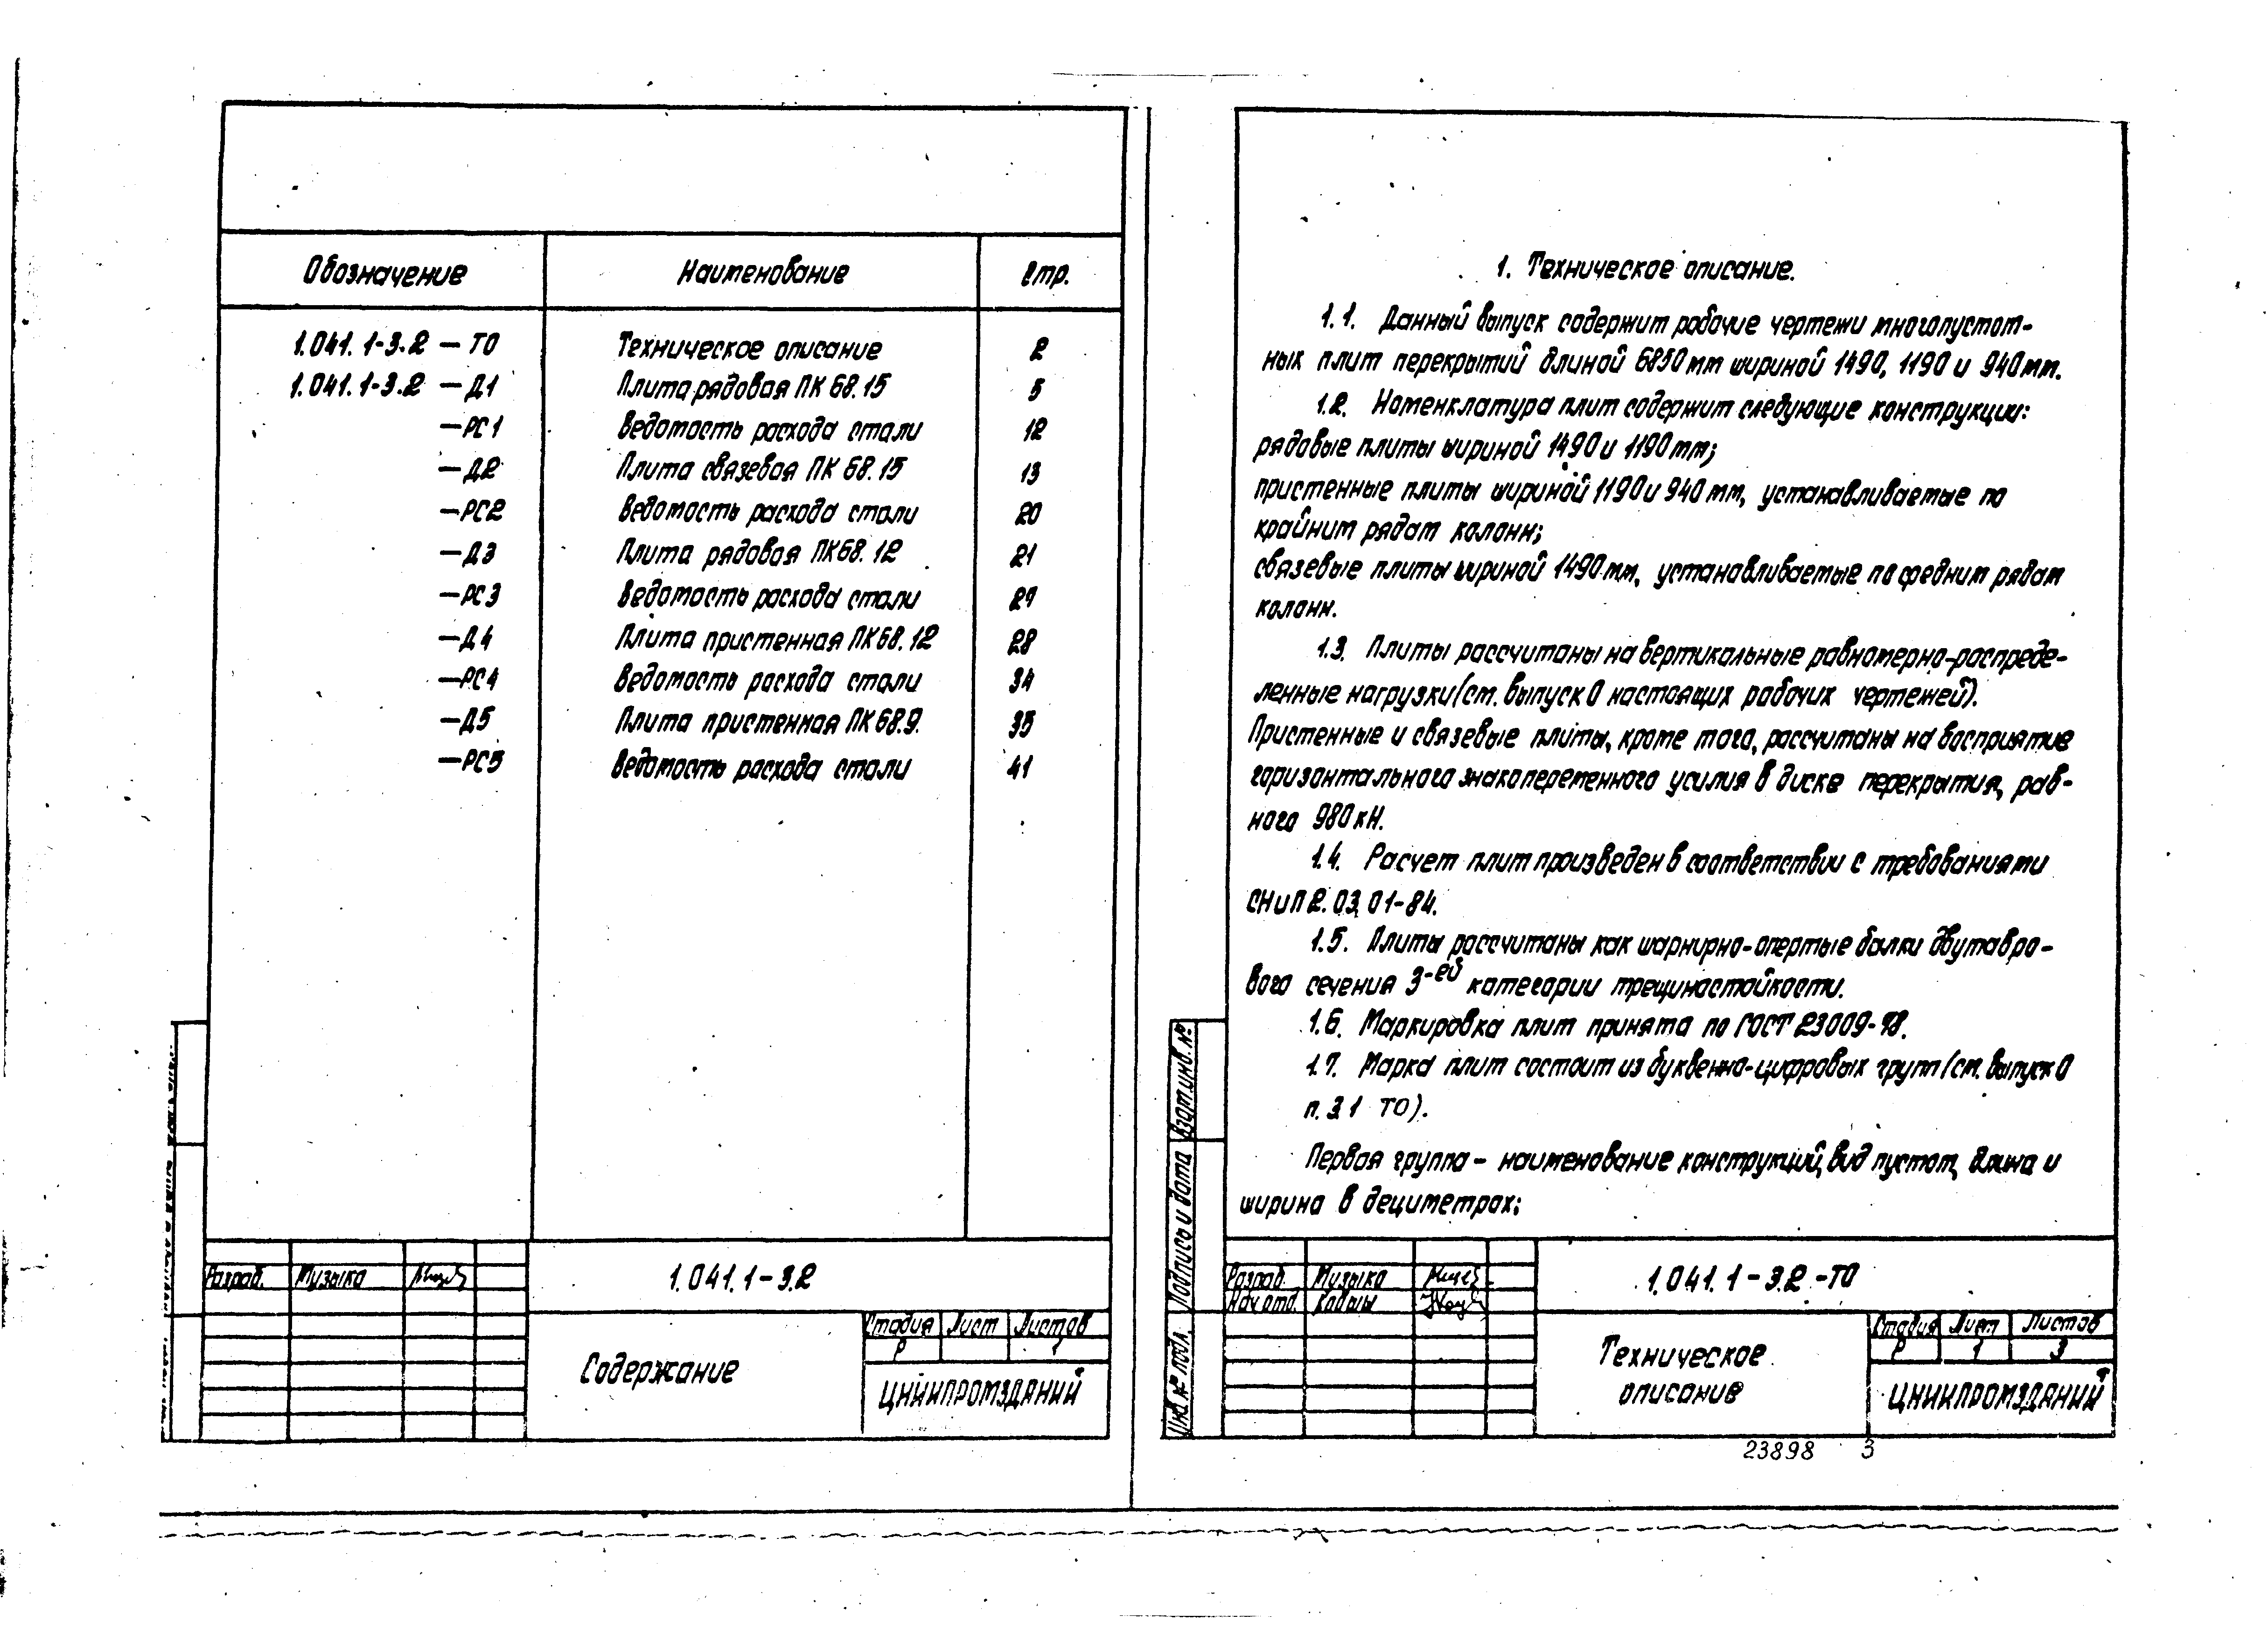 Обозначение Наименование Стр.
1.041.1-3.2 — ТО Техническое описание 2
1.041.1-3.2 — Д1 Плита рядовая ПК 68.15 5
—РС1 Ведомость расхода стали 12
—Д2 Плита связевая ПК 68.15 13
—РС2 Ведомость расхода стали 20
—Д3 Плита рядовая ПК68.12 21
—РС3 Ведомость расхода стали
—Д4 Плита пристенная ПК68.12 28
—РС4 Ведомость расхода стали 34
—Д5 Плита пристенная ПК68.9. 35
—РС5 Ведомость расхода стали 41
Разраб. Музыка
1.041.1-3.2
Содержание
Стадия Лист Листов
Р 1
ЦНИИПРОМЗДАНИЙ
1. Техническое описание.
1.1. Данный выпуск содержит рабочие чертежи многопустот-
ных плит перекрытий длиной 6850мм шириной 1490, 1190 и 940мм.
1.2. Номенклатура плит содержит следующие конструкции:
рядовые плиты шириной 1490 и 1190мм;
пристенные плиты шириной 1190 и 940 мм, устанавливаемые по
крайним рядам колонн;
связевые плиты шириной 1490мм, устанавливаемые по средним рядам
колонн.
1.3. Плиты рассчитаны на вертикальные равномерно-распреде-
ленные нагрузки (см. выпуск 0 настоящих рабочих чертежей).
Пристенные и связевые плиты, кроме того, рассчитаны на восприятие
горизонтального знакопеременного усилия в диске перекрытия, рав-
ного 980 кН.
1.4. Расчет плит произведен в соответствии с требованиями
СНиП 2.03.01-84.
1.5. Плиты рассчитаны как шарнирно-опертые балки двутавро-
вого сечения 3-ей категории трещиностойкости.
1.6. Маркировка плит принята по ГОСТ 23009-78.
1.7. Марка плит состоит из буквенно-цифровых групп (см. выпуск 0
п. 3.1 ТО).
Первая группа - наименование конструкций, вид пустот, длина и
ширина в дециметрах;
Взам.инв.№
Подпись и дата
Инв.№ подл.
Разраб. Музыка
Нач.отд.
1.041.1-3.2-ТО
Техническое
описание
Стадия Лист Листов
Р 1 3
ЦНИИПРОМЗДАНИЙ
23898 3